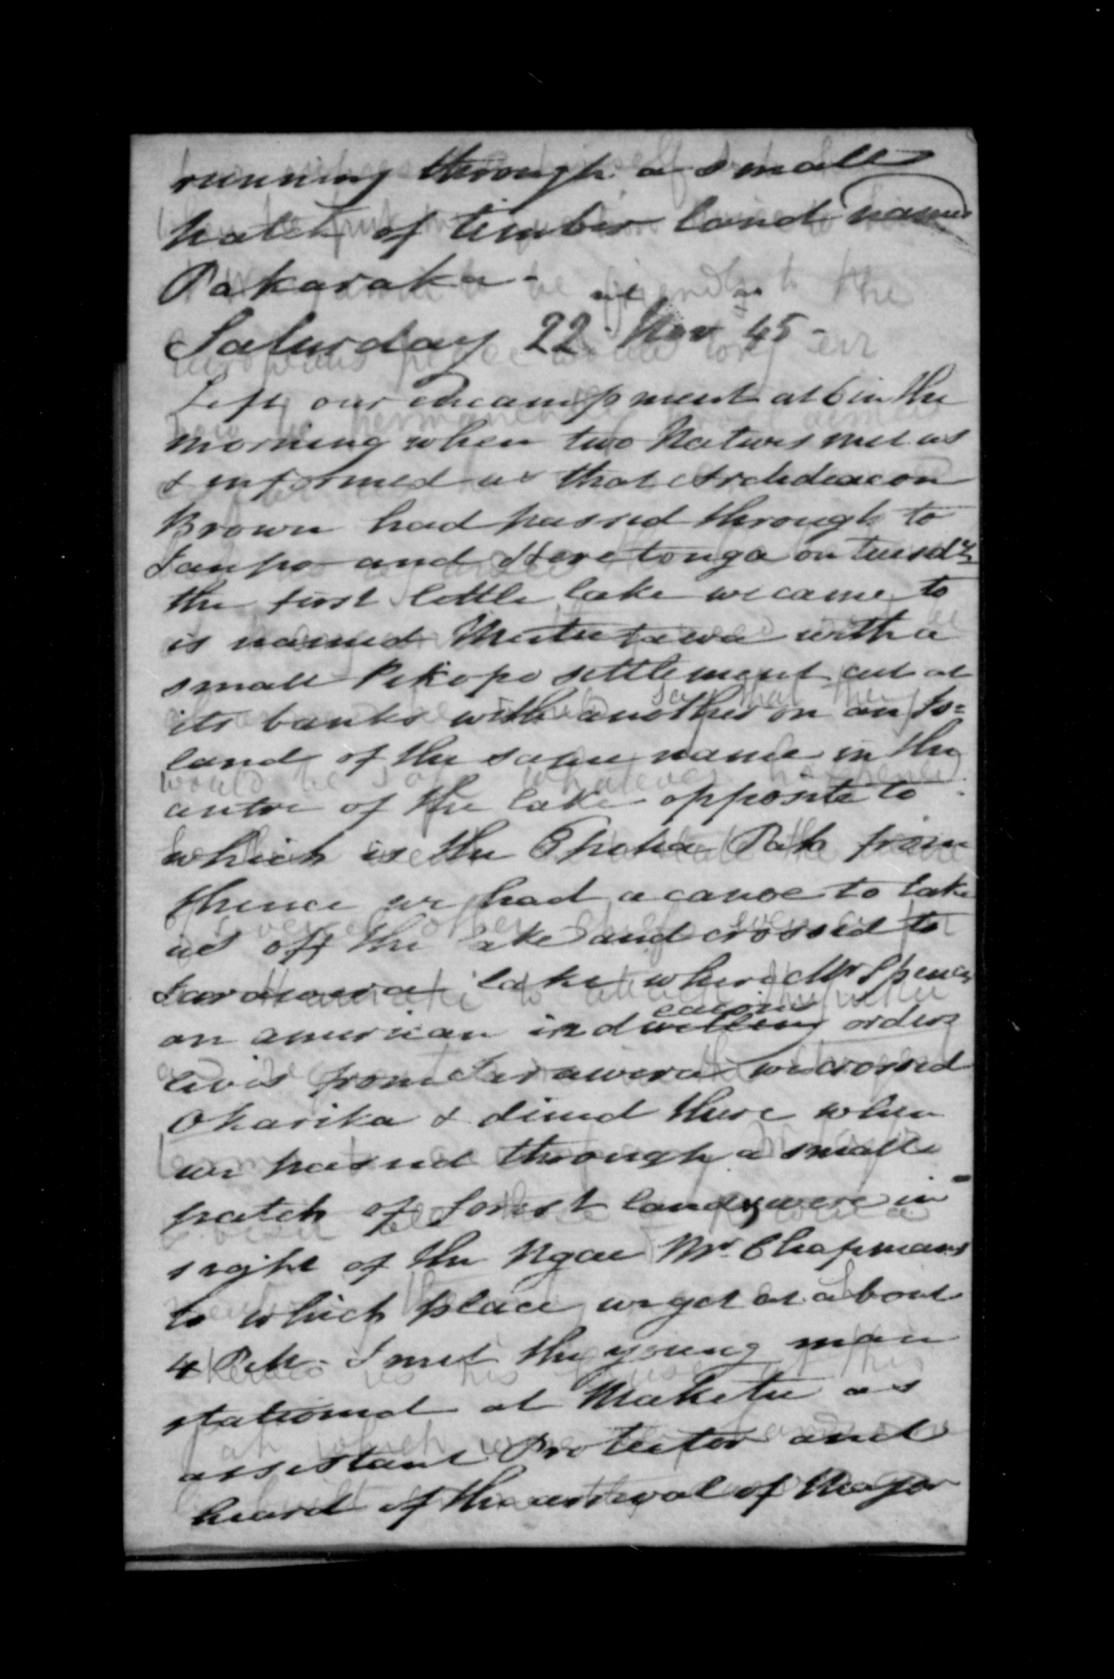 running through a small
patch of timber land named
Pakaraka -
Saturday 22nd Nov 45 -
Left our encampment at 6 in the
morning when two Natives met us
& informed us that Archdeacon
Brown had passed through to
Taupo and Heretonga on Tuesdy
the first little lake we came to
is named with a
small Pikopo settlement at
its banks with another on an Is=
land of the same name in the
centre of the lake opposite to
which is the Pah from
thence we had a canoe to take
us off the lake and crossed to
Tarawera lake where Mr Spencer
an american in orders
lives from Tarawera we crossed
Okarika & dined there when
we passed through a small
patch of forest land & were in
sight of the Ngae Mr Chapmans
to which place we got at about
4 P.M. I met the young man
stationed at Maketu as
assistant Protector and
heard of the arrival of Major